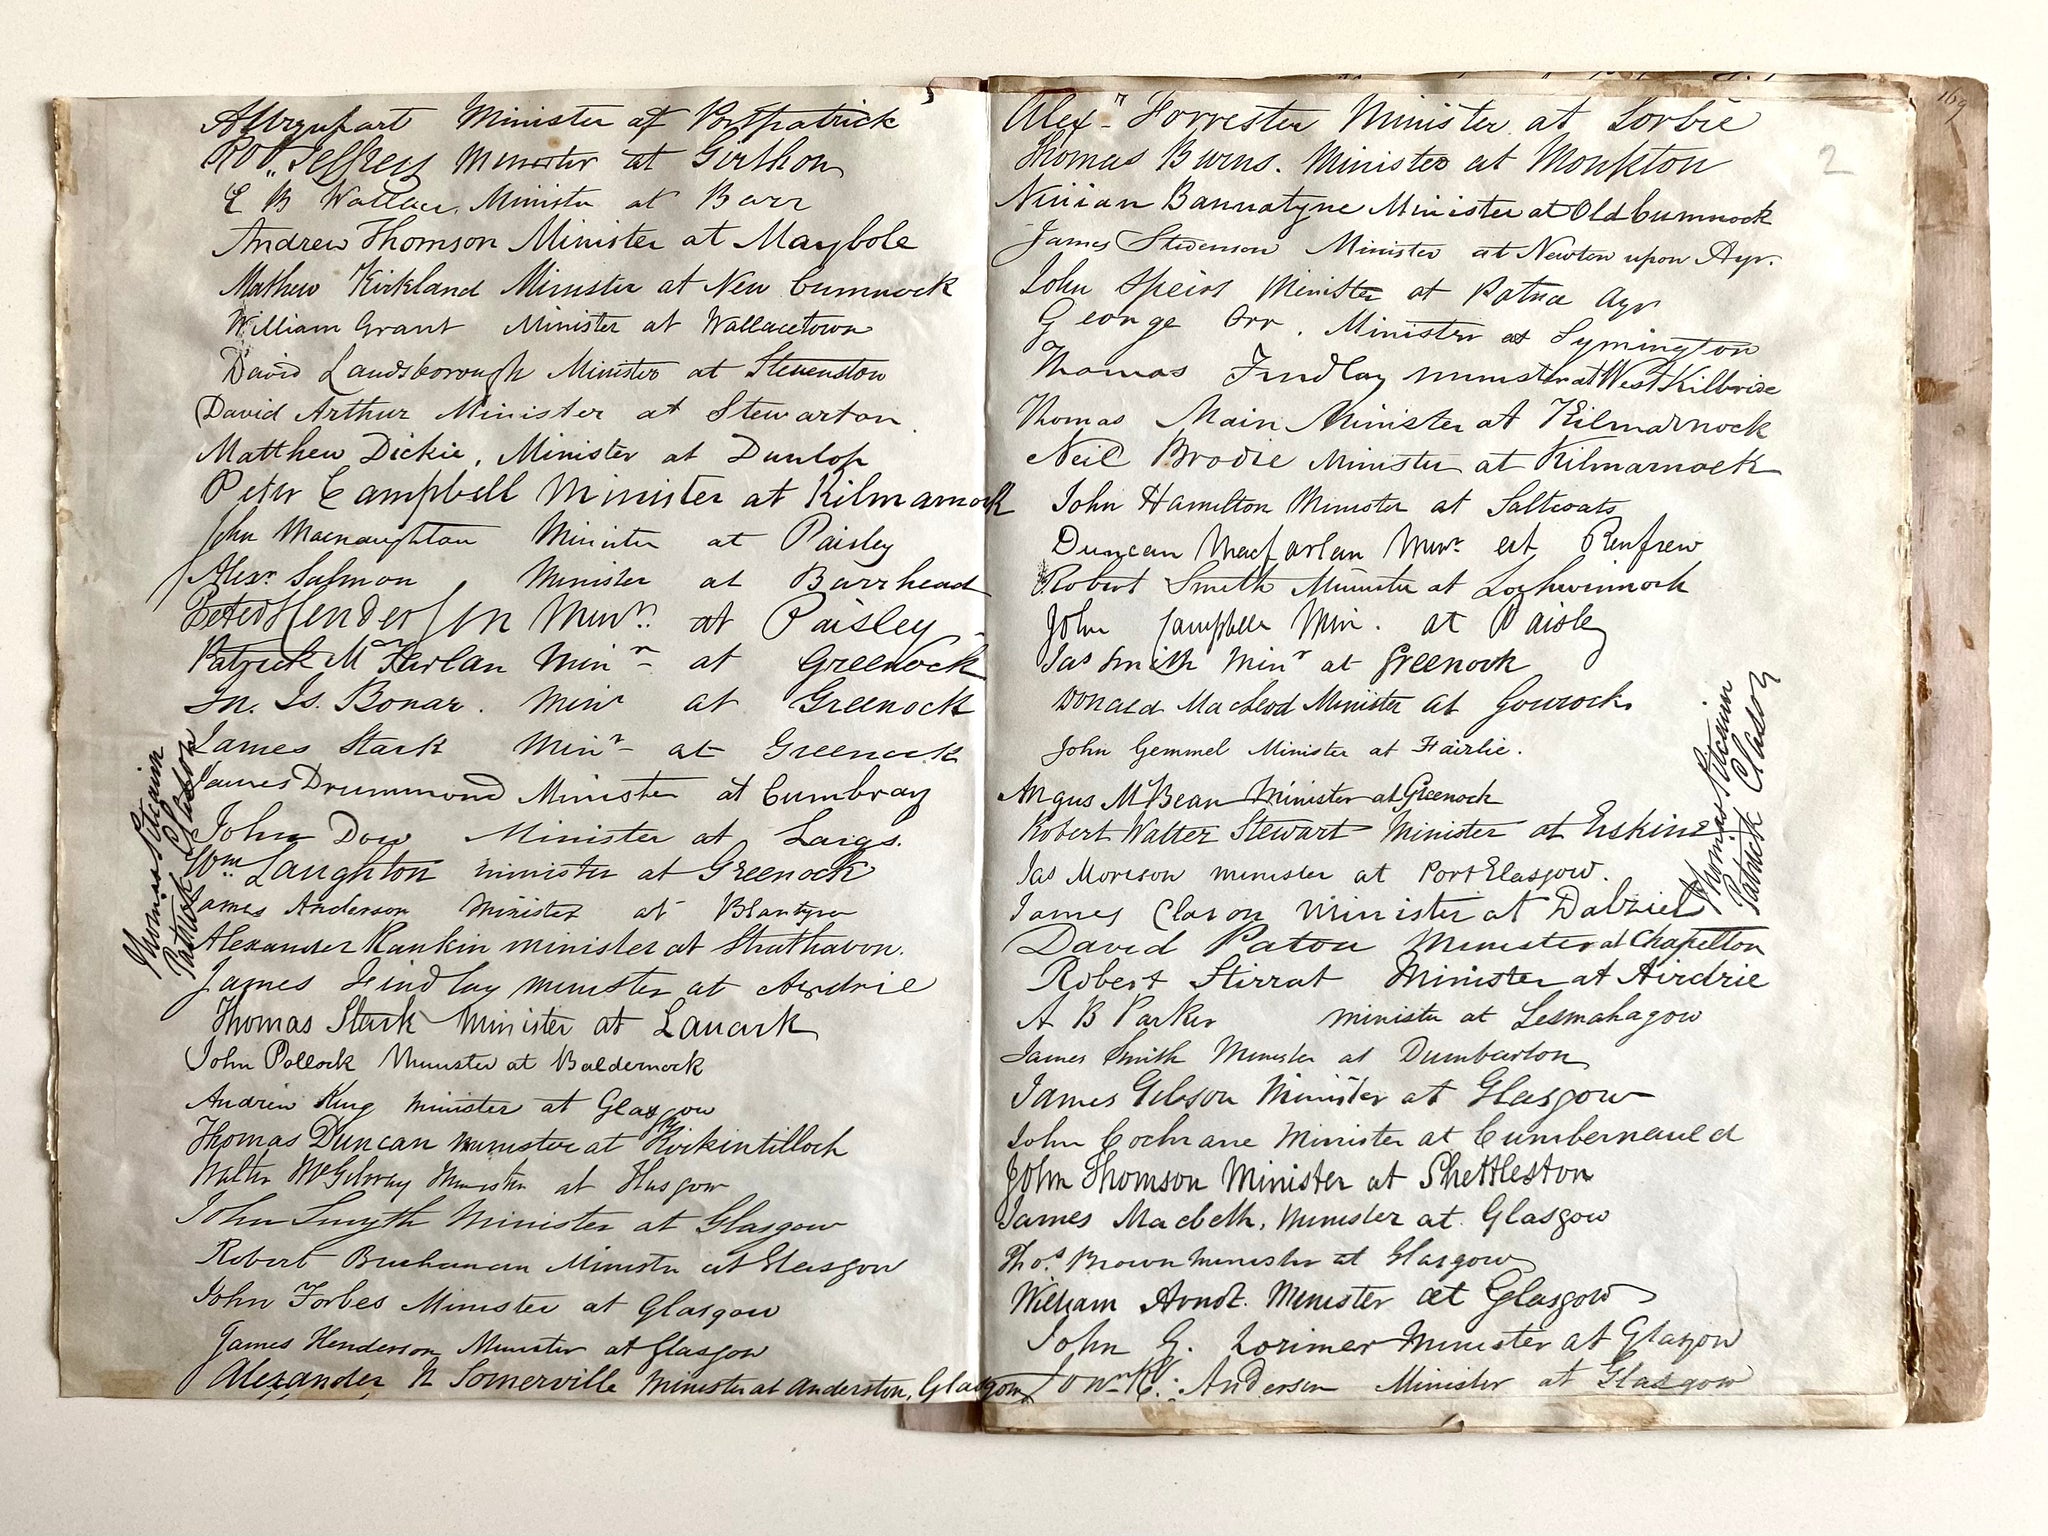 A Urquhart Minister at Portpatrick
Robt Jeffrey Minister at Girthon
E B Wallace, Minister at Barr
Andrew Thomson Minister at Maybole
Mathew Kirkland Minister at New Cumnock
William Grant Minister at Wallacetown
David Landsborough Minister at Stevenston
David Arthur Minister at Stewarton.
Matthew Dickie, Minister at Dunlop
Peter Campbell Minister at Kilmarnock
John Macnaughtan Minister at Paisley
Alexr Salmon, Minister at Barrhead
Peter Henderson Minr. at Paisley
Patrick McFarlan Minr at Greenock
Jn. Js. Bonar. Minr at Greenock
James Stark Minr at Greenock
James Drummond Minister at Cumbray
John Dow Minister at Largs.
Wm Laughton minister at Greenock
James Anderson Minister at Blantyre
Alexander Rankin minister at Strathavon.
James Findlay minister at Airdrie
Thomas Stark Minister at Lanark
John Pollock Minister at Baldernock
Andrew King minister at Glasgow
Thomas Duncan minister at Kirkintilloch
Walter McGilvray Minister at Glasgow
John Smyth Minister at Glasgow
Robert Buchanan Minister at Glasgow
John Forbes Minister at Glasgow
James Henderson Minister at Glasgow
Alexander N Somerville minister at Anderston, Glasgow
Thomas Pitcairn
Patrick Clason
169
2
Alexr Forrester Minister at Sorbie
Thomas Burns. Minister at Monkton
Ninian Bannatyne Minister at Old Cumnock
James Stevenson Minister at Newton upon Ayr.
John Speirs Minister at Patna Ayr
George Orr. Minister at Symington
Thomas Findlay minister at West Kilbride
Thomas Main Minister at Kilmarnock
Neil Brodie Minister at Kilmarnock
John Hamilton Minister at Saltcoats
Duncan Macfarlan Minr. at Renfrew
Robert Smith Minister at Lochwinnoch
John Campbell Min. at Paisley
Jas Smith Minr at Greenock
Donald MacLeod Minister at Gourock.
John Gemmel Minister at Fairlie.
Angus McBean Minister at Greenock
Robert Walter Stewart Minister at Erskine
Jas Morison minister at Port Glasgow.
James Clason Minister at Dalziel
David Paton Minister at Chapelton
Robert Stirrat Minister at Airdrie
A B Parker minister at Lesmahagow
James Smith Minister at Dumbarton
James Gibson Minister at Glasgow
John Cochrane Minister at Cumbernauld
John Thomson Minister at Shettleston
James Macbeth, Minister at Glasgow
Thos. Brown minister at Glasgow
William Arnot. Minister at Glasgow
John G. Lorimer Minister at Glasgow
Jonn. R. Anderson Minister at Glasgow
Thomas Pitcairn
Patrick Clason